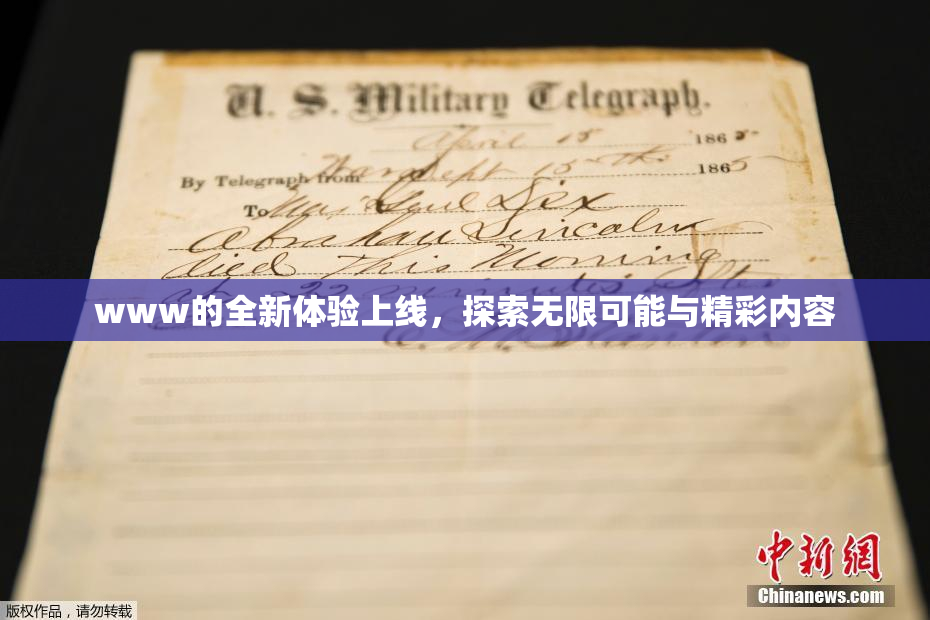 U. S. Military Telegraph.
April 15 1865
By Telegraph from War Dept 15th 1865
To Maj Genl Dix
Abraham Lincoln
died this Morning
at 22 minutes after
www的全新体验上线，探索无限可能与精彩内容
E. M. Stanton
中新網
Chinanews.com
版权作品，请勿转载